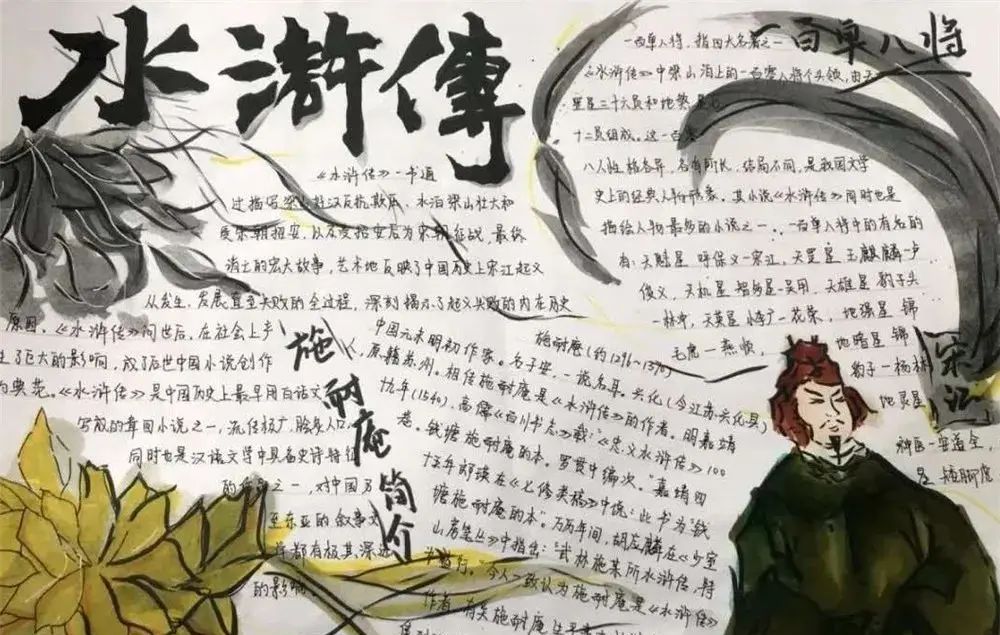 水滸傳
《水浒传》一书通
过描写梁山好汉反抗欺压、水泊梁山壮大和
受宋朝招安,以及受招安后为宋朝征战,最终
消亡的宏大故事,艺术地反映了中国历史上宋江起义
从发生、发展直至失败的全过程,深刻揭示了起义失败的内在历史
原因。《水浒传》问世后,在社会上产
生了巨大的影响,成了后世中国小说创作
的典范。《水浒传》是中国历史上最早用白话文
写成的章回小说之一,流传极广,脍炙人口,
同时也是汉语文学中具备史诗特征
的作品之一,对中国乃
至东亚的叙事文
学都有极其深远
的影响。
一百单八将
一百单八将,指四大名著之一
《水浒传》中梁山泊上的一百零八将个头领,由天
罡星三十六员和地煞星七
十二员组成。这一百零
八人性格各异,各有所长,结局不同,是我国文学
史上的经典人物形象。其小说《水浒传》同时也是
描绘人物最多的小说之一。一百单八将中的有名的
有:天魁星 呼保义—宋江,天罡星 玉麒麟—卢
俊义,天机星 智多星—吴用,天雄星 豹子头
—林冲,天英星 小李广—花荣,地强星 锦
毛虎—燕顺, 地暗星 锦
豹子—杨林
地灵星
神医—安道全,
星 矮脚虎
宋江
施耐庵简介
施耐庵(约1296~1370)
中国元末明初作家。名子安,一说名耳。兴化(今江苏兴化县)
人,原籍苏州。相传施耐庵是《水浒传》的作者。明嘉靖
十九年(1540),高儒《百川书志》载:“《忠义水浒传》100
卷。钱塘施耐庵的本。罗贯中编次。”嘉靖四
十五年郎瑛在《七修类稿》中说:此书为“钱
塘施耐庵的本”。万历年间,胡应麟在《少室
山房笔丛》中指出:“武林施某所水浒传,特
为盛行。”今人一致认为施耐庵是《水浒传》
作者。有关施耐庵生平事